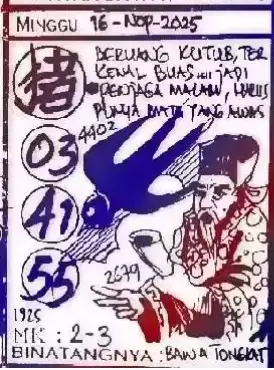 MINGGU 16-NOP-2025
BERUANG KUTUB, TER
KENAL BUAS JADI
PENJAGA MALAM, HARUS
PUNYA MATA YANG AWAS
猪
4402
03
41
55
2679
1925
MK : 2-3
BINATANGNYA : BAWA TONGKAT